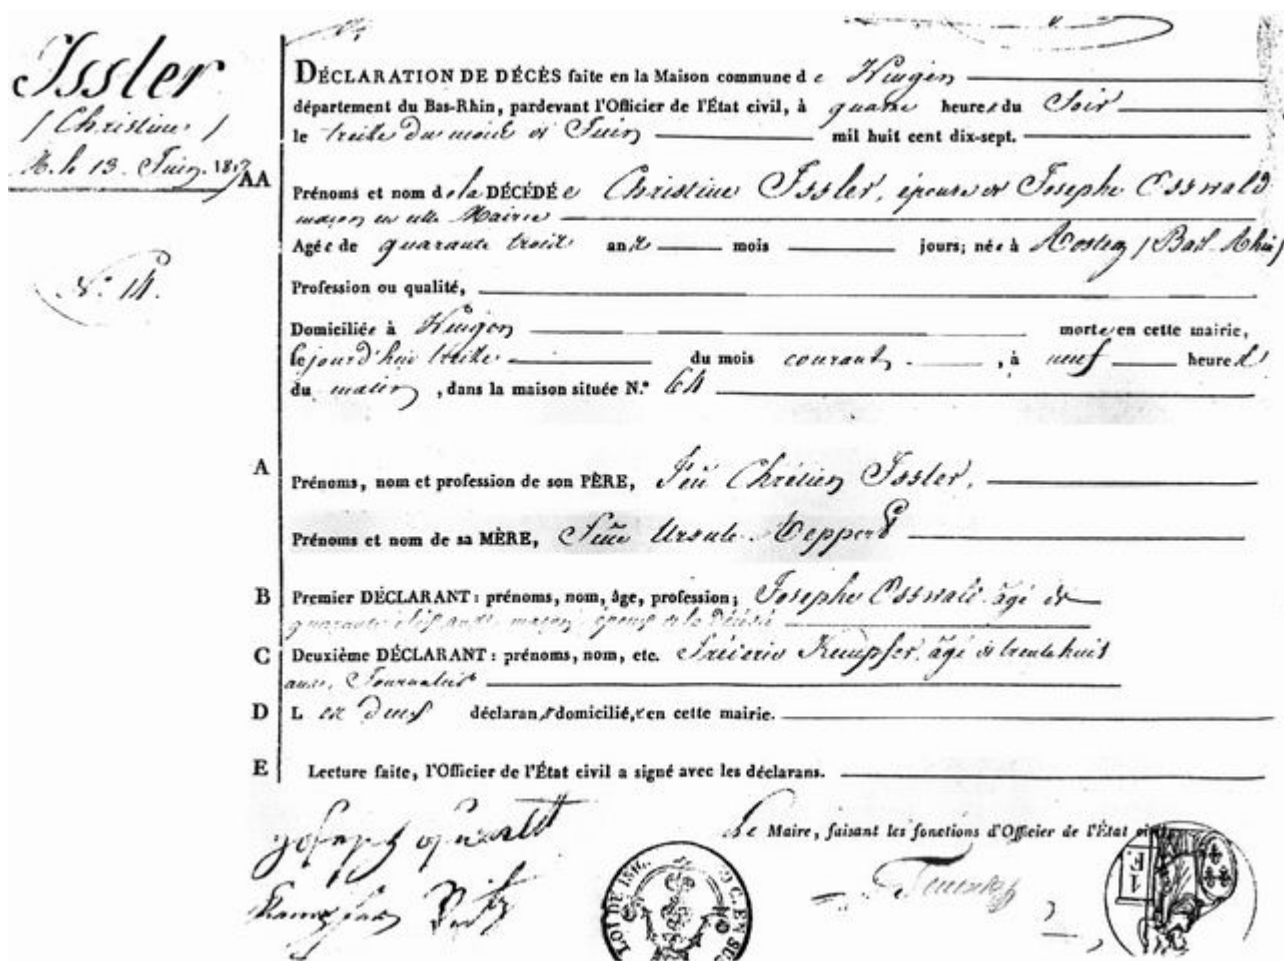 Issler
/ Christine /
M. le 13. Juin. 1817
N.° 14.
DÉCLARATION DE DÉCÈS faite en la Maison commune de Wingen
département du Bas-Rhin, pardevant l'Officier de l'État civil, à quatre heures du Soir
le treize du mois de Juin mil huit cent dix-sept.
AA
Prénoms et nom de la DÉCÉDÉe Christine Issler, épouse de Josephe Osswald
maçon en cette Mairie
Agée de quarante trois ans mois jours; née à (Bas-Rhin)
Profession ou qualité,
Domiciliée à Wingen morte en cette mairie,
le jourd'hui treize du mois courant, à neuf heures
du matin, dans la maison située N.° 64
A
Prénoms, nom et profession de son PÈRE, feu Chrétien Issler,
Prénoms et nom de sa MÈRE, feue Ursule
B Premier DÉCLARANT: prénoms, nom, âge, profession; Josephe Osswald âgé de
quarante ans, maçon, époux de la décédée
C Deuxième DÉCLARANT: prénoms, nom, etc. Fréderic Kempfer, âgé de trente huit
ans, Journalier
D Les deux déclarans domiciliés en cette mairie.
E Lecture faite, l'Officier de l'État civil a signé avec les déclarans.
Le Maire, faisant les fonctions d'Officier de l'État civil,
LOI DE
C. EN SUS
1 F.